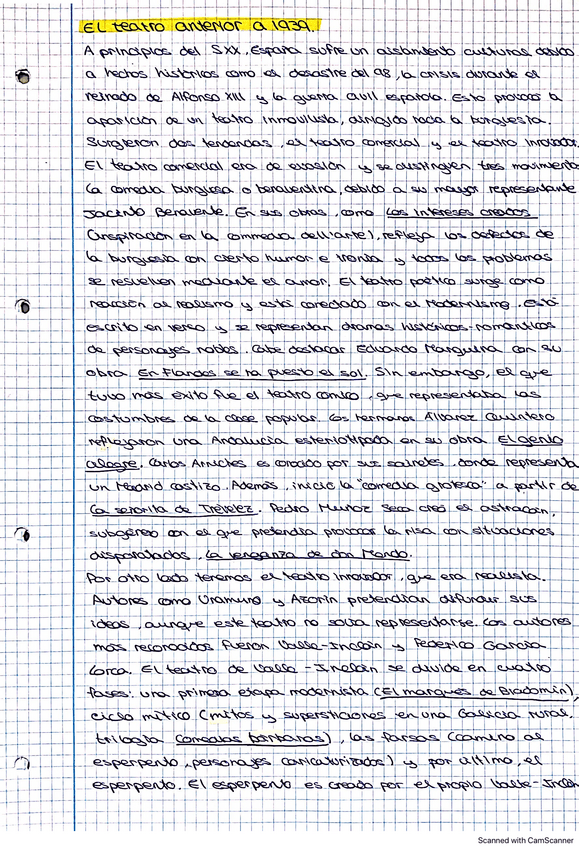 El teatro anterior a 1939.
A principios del SXX, España sufre un aislamiento cultural debido
a hechos históricos como el desastre del 98, la crisis durante el
reinado de Alfonso XIII y la guerra civil española. Esto provoca la
aparición de un teatro inmovilista, dirigido hacia la burguesía.
Surgieron dos tendencias, el teatro comercial y el teatro innovador.
El teatro comercial era de evasión y se distinguen tres movimientos
La comedia burguesa o benaventina, debido a su mayor representante
Jacinto Benavente. En sus obras, como Los intereses creados
(inspiración en la commedia dell'arte), refleja los defectos de
la burguesía con cierto humor e ironía y todos los problemas
se resuelven mediante el amor. El teatro poético surge como
reacción al realismo y está conectado con el Modernismo. Está
escrito en verso y se representan dramas históricos-románticos
de personajes nobles. Cabe destacar Eduardo Marquina con su
obra En Flandes se ha puesto el sol. Sin embargo, el que
tuvo más éxito fue el teatro cómico, que representaba las
costumbres de la clase popular. Los hermanos Álvarez Quintero
reflejaron una Andalucía estereotipada en su obra El genio
alegre. Carlos Arniches es conocido por sus sainetes, donde representa
un Madrid castizo. Además, inició la "comedia grotesca" a partir de
La señorita de Trévelez. Pedro Muñoz Seca creó el astracán,
subgénero con el que pretendía provocar la risa con situaciones
disparatadas, La venganza de don Mendo.
Por otro lado tenemos el teatro innovador, que era realista.
Autores como Unamuno y Azorín pretendían difundir sus
ideas, aunque este teatro no solía representarse. Los autores
más reconocidos fueron Valle-Inclán y Federico García
Lorca. El teatro de Valle-Inclán se divide en cuatro
fases: una primera etapa modernista (El marqués de Bradomín),
ciclo mítico (mitos y supersticiones en una Galicia rural,
trilogía Comedias bárbaras), las farsas (camino al
esperpento, personajes caricaturizados) y por último, el
esperpento. El esperpento es creado por el propio Valle-Inclán
Scanned with CamScanner